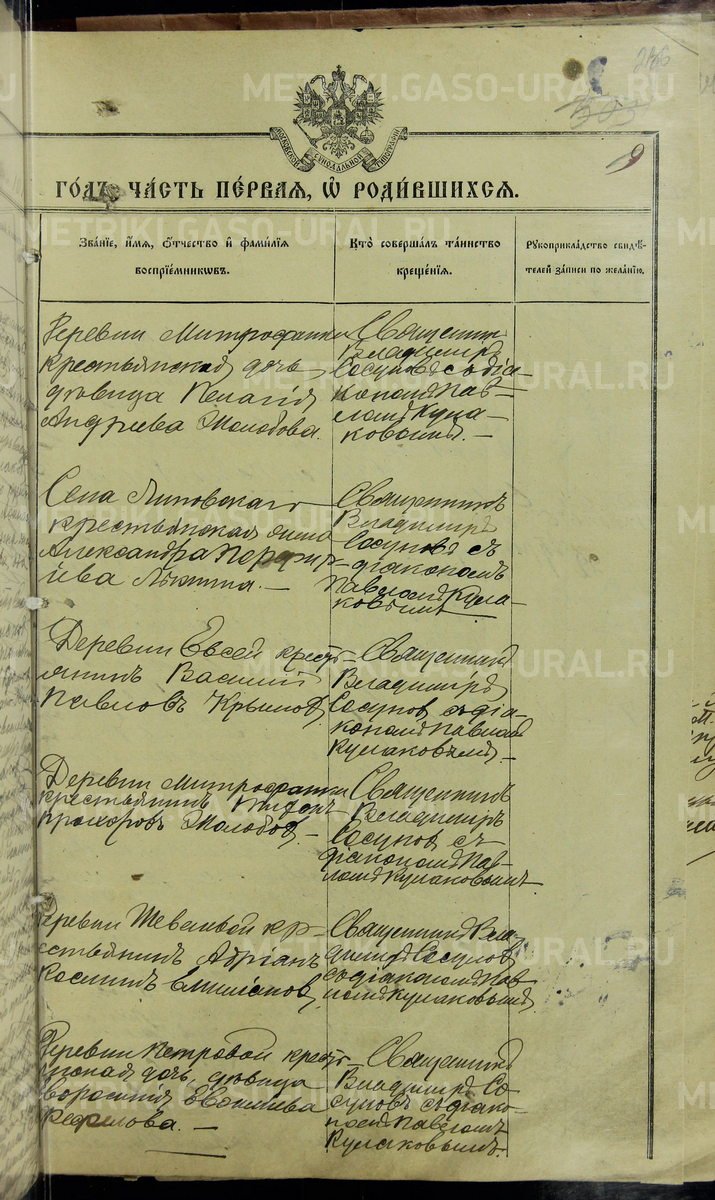 236
503
9
МОСКОВСКОЙ СѴНОДАЛЬНОЙ ТИПОГРАФІИ
ГО́ДЪ, ЧА́СТЬ ПЕ́РВАЯ, Ѽ РОДИ́ВШИХСЯ.
Зва́нїе, и҆́мя, ѻ҆́тчество и҆ фами́лїя
воспрїе́мниковъ.
Кто̀ соверша́лъ та́инство
креще́нїя.
Рукоприкла́дство свидѣ́-
телей за́писи по жела́нїю.
Деревни Митрофанки
крестьянская дочь
дѣвица Пелагія
Андреева Молобова.
Священникъ
Владиміръ
Сосуновъ съ діа-
кономъ Пав-
ломъ Кула-
ковымъ. —
Села Липовскаго
крестьянская жена
Александра Порфир-
іева
Священникъ
Владиміръ
Сосуновъ съ
діакономъ
Павломъ Кула-
ковымъ
Деревни Евсей кресть-
янинъ Василій
Павловъ Крылов
Священникъ
Владиміръ
Сосуновъ съ діа-
кономъ Павломъ
Кулаковымъ. —
Деревни Митрофанки
крестьянинъ
Прохоровъ Молобов. —
Священникъ
Владиміръ
Сосуновъ съ
діакономъ Пав-
ломъ Кулаковымъ
Деревни кр-
естьянинъ Адріанъ
Косминъ Емиліанов
Священникъ Вла-
диміръ Сосуновъ
съ діакономъ Пав-
ломъ Кулаковымъ
Деревни Петровой кресть-
янская дочь, дѣвица
Евгеніева
— 
Священникъ
Владиміръ Со-
суновъ съ діако-
номъ Павломъ
Кулаковымъ.
METRIKI.GASO-URAL.RU